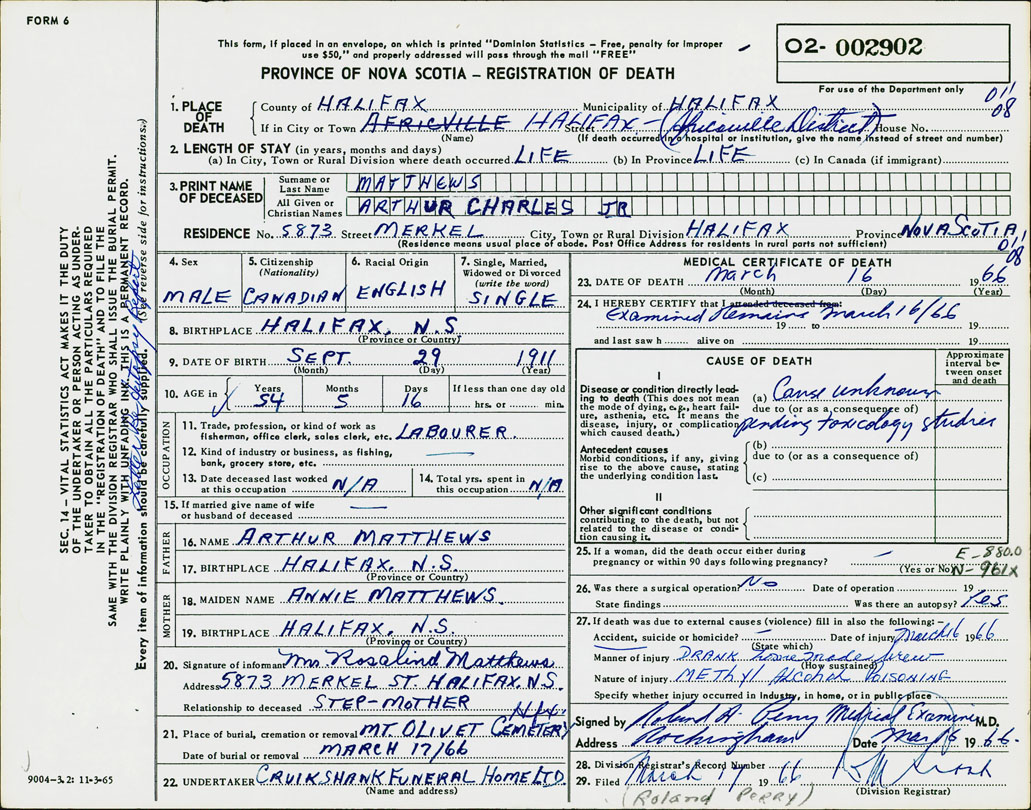 FORM 6
This form, if placed in an envelope, on which is printed "Dominion Statistics – Free, penalty for improper
use $50," and properly addressed will pass through the mail "FREE"
O2- 002902
PROVINCE OF NOVA SCOTIA – REGISTRATION OF DEATH
For use of the Department only
011
08
1. PLACE OF DEATH
County of HALIFAX Municipality of HALIFAX
If in City or Town AFRICVILLE HALIFAX – Street (Africville District) House No.
(Name) (If death occurred in a hospital or institution, give the name instead of street and number)
2. LENGTH OF STAY (in years, months and days)
(a) In City, Town or Rural Division where death occurred LIFE (b) In Province LIFE (c) In Canada (if immigrant)
3. PRINT NAME OF DECEASED
Surname or Last Name MATTHEWS
All Given or Christian Names ARTHUR CHARLES JR
RESIDENCE No. 5873 Street MERKEL City, Town or Rural Division HALIFAX Province NOVA SCOTIA
(Residence means usual place of abode. Post Office Address for residents in rural parts not sufficient)
011
08
4. Sex
MALE
5. Citizenship
(Nationality)
CANADIAN
6. Racial Origin
ENGLISH
7. Single, Married, Widowed or Divorced
(write the word)
SINGLE
8. BIRTHPLACE HALIFAX, N.S
(Province or Country)
9. DATE OF BIRTH SEPT. 29 1911
(Month) (Day) (Year)
10. AGE in Years 54 Months 5 Days 16 If less than one day old
hrs. or min.
OCCUPATION
11. Trade, profession, or kind of work as
fisherman, office clerk, sales clerk, etc. LABOURER.
12. Kind of industry or business, as fishing,
bank, grocery store, etc. —
13. Date deceased last worked
at this occupation N/A
14. Total yrs. spent in
this occupation N/A
15. If married give name of wife
or husband of deceased —
FATHER
16. NAME ARTHUR MATTHEWS
17. BIRTHPLACE HALIFAX, N.S
(Province or Country)
MOTHER
18. MAIDEN NAME ANNIE MATTHEWS.
19. BIRTHPLACE HALIFAX, N.S.
(Province or Country)
20. Signature of informant Mrs Rosalind Matthews
Address 5873 MERKEL ST. HALIFAX, N.S.
Relationship to deceased STEP-MOTHER
Hfx.
21. Place of burial, cremation or removal MT. OLIVET CEMETERY
Date of burial or removal MARCH 17/66
22. UNDERTAKER CRUIKSHANK FUNERAL HOME LTD.
(Name and address)
MEDICAL CERTIFICATE OF DEATH
23. DATE OF DEATH March 16 1966
(Month) (Day) (Year)
24. I HEREBY CERTIFY that I attended deceased from:
Examined Remains March 16/66
19 to 19
and last saw h alive on 19
CAUSE OF DEATH
Approximate interval between onset and death
I
Disease or condition directly leading to death (This does not mean the mode of dying, e.g., heart failure, asthenia, etc. It means the disease, injury, or complication which caused death.)
(a) Cause unknown
due to (or as a consequence of)
pending toxicology studies
Antecedent causes
Morbid conditions, if any, giving rise to the above cause, stating the underlying condition last.
(b)
due to (or as a consequence of)
(c)
II
Other significant conditions
contributing to the death, but not related to the disease or condition causing it.
25. If a woman, did the death occur either during
pregnancy or within 90 days following pregnancy? —
(Yes or No)
E – 880.0
N – 961X
26. Was there a surgical operation? No Date of operation 19
State findings Was there an autopsy? Yes
27. If death was due to external causes (violence) fill in also the following:–
Accident, suicide or homicide? — Date of injury March 16 1966
(State which)
Manner of injury DRANK home made brew
(How sustained)
Nature of injury METHYL Alcohol POISONING
Specify whether injury occurred in industry, in home, or in public place
Signed by Roland A. Perry Medical Examiner M.D.
Address Rockingham Date 1966.
28. Division Registrar's Record Number
29. Filed March 17 1966
(Division Registrar)
(Roland PERRY)
SEC. 14 – VITAL STATISTICS ACT MAKES IT THE DUTY
OF THE UNDERTAKER OR PERSON ACTING AS UNDERTAKER
TO OBTAIN ALL THE PARTICULARS REQUIRED
IN THE "REGISTRATION OF DEATH" AND TO FILE THE
SAME WITH THE DIVISION REGISTRAR WHO SHALL ISSUE THE BURIAL PERMIT.
WRITE PLAINLY WITH UNFADING INK. THIS IS A PERMANENT RECORD.
Every item of information should be carefully supplied. (See reverse side for instructions.)
9004-3.2: 11-3-65